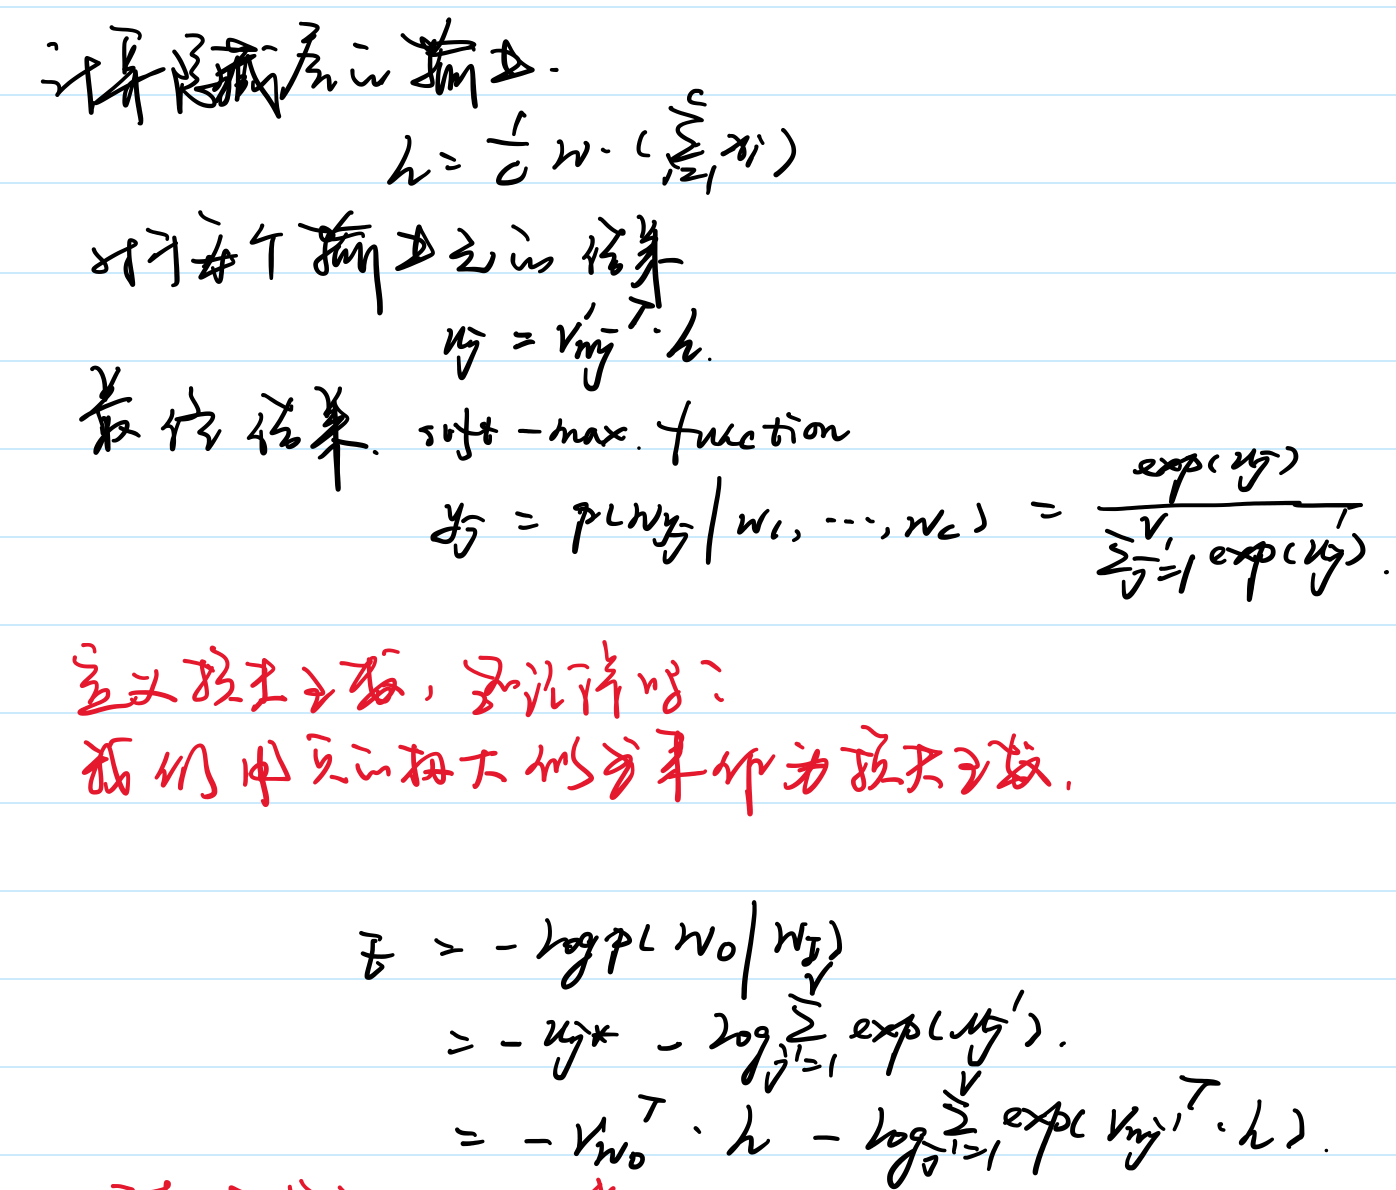 计算隐藏层的输出.
h = 1/C W · (∑_{i=1}^{C} x_i)
对于每个输出层的结果
u_j = v'_{wj}^T · h.
最后结果. soft-max. function
y_j = p(w_{yj} | w_1, ..., w_c) = exp(u_j) / ∑_{j'=1}^{V} exp(u_j') .
定义损失函数,
我们用它的极大似然来作为损失函数.
E = - log p(w_O | w_I)
= - u_{j*} - log ∑_{j'=1}^{V} exp(u_j').
= - v_{wo}^T · h - log ∑_{j'=1}^{V} exp(v_{wj'}^T · h).